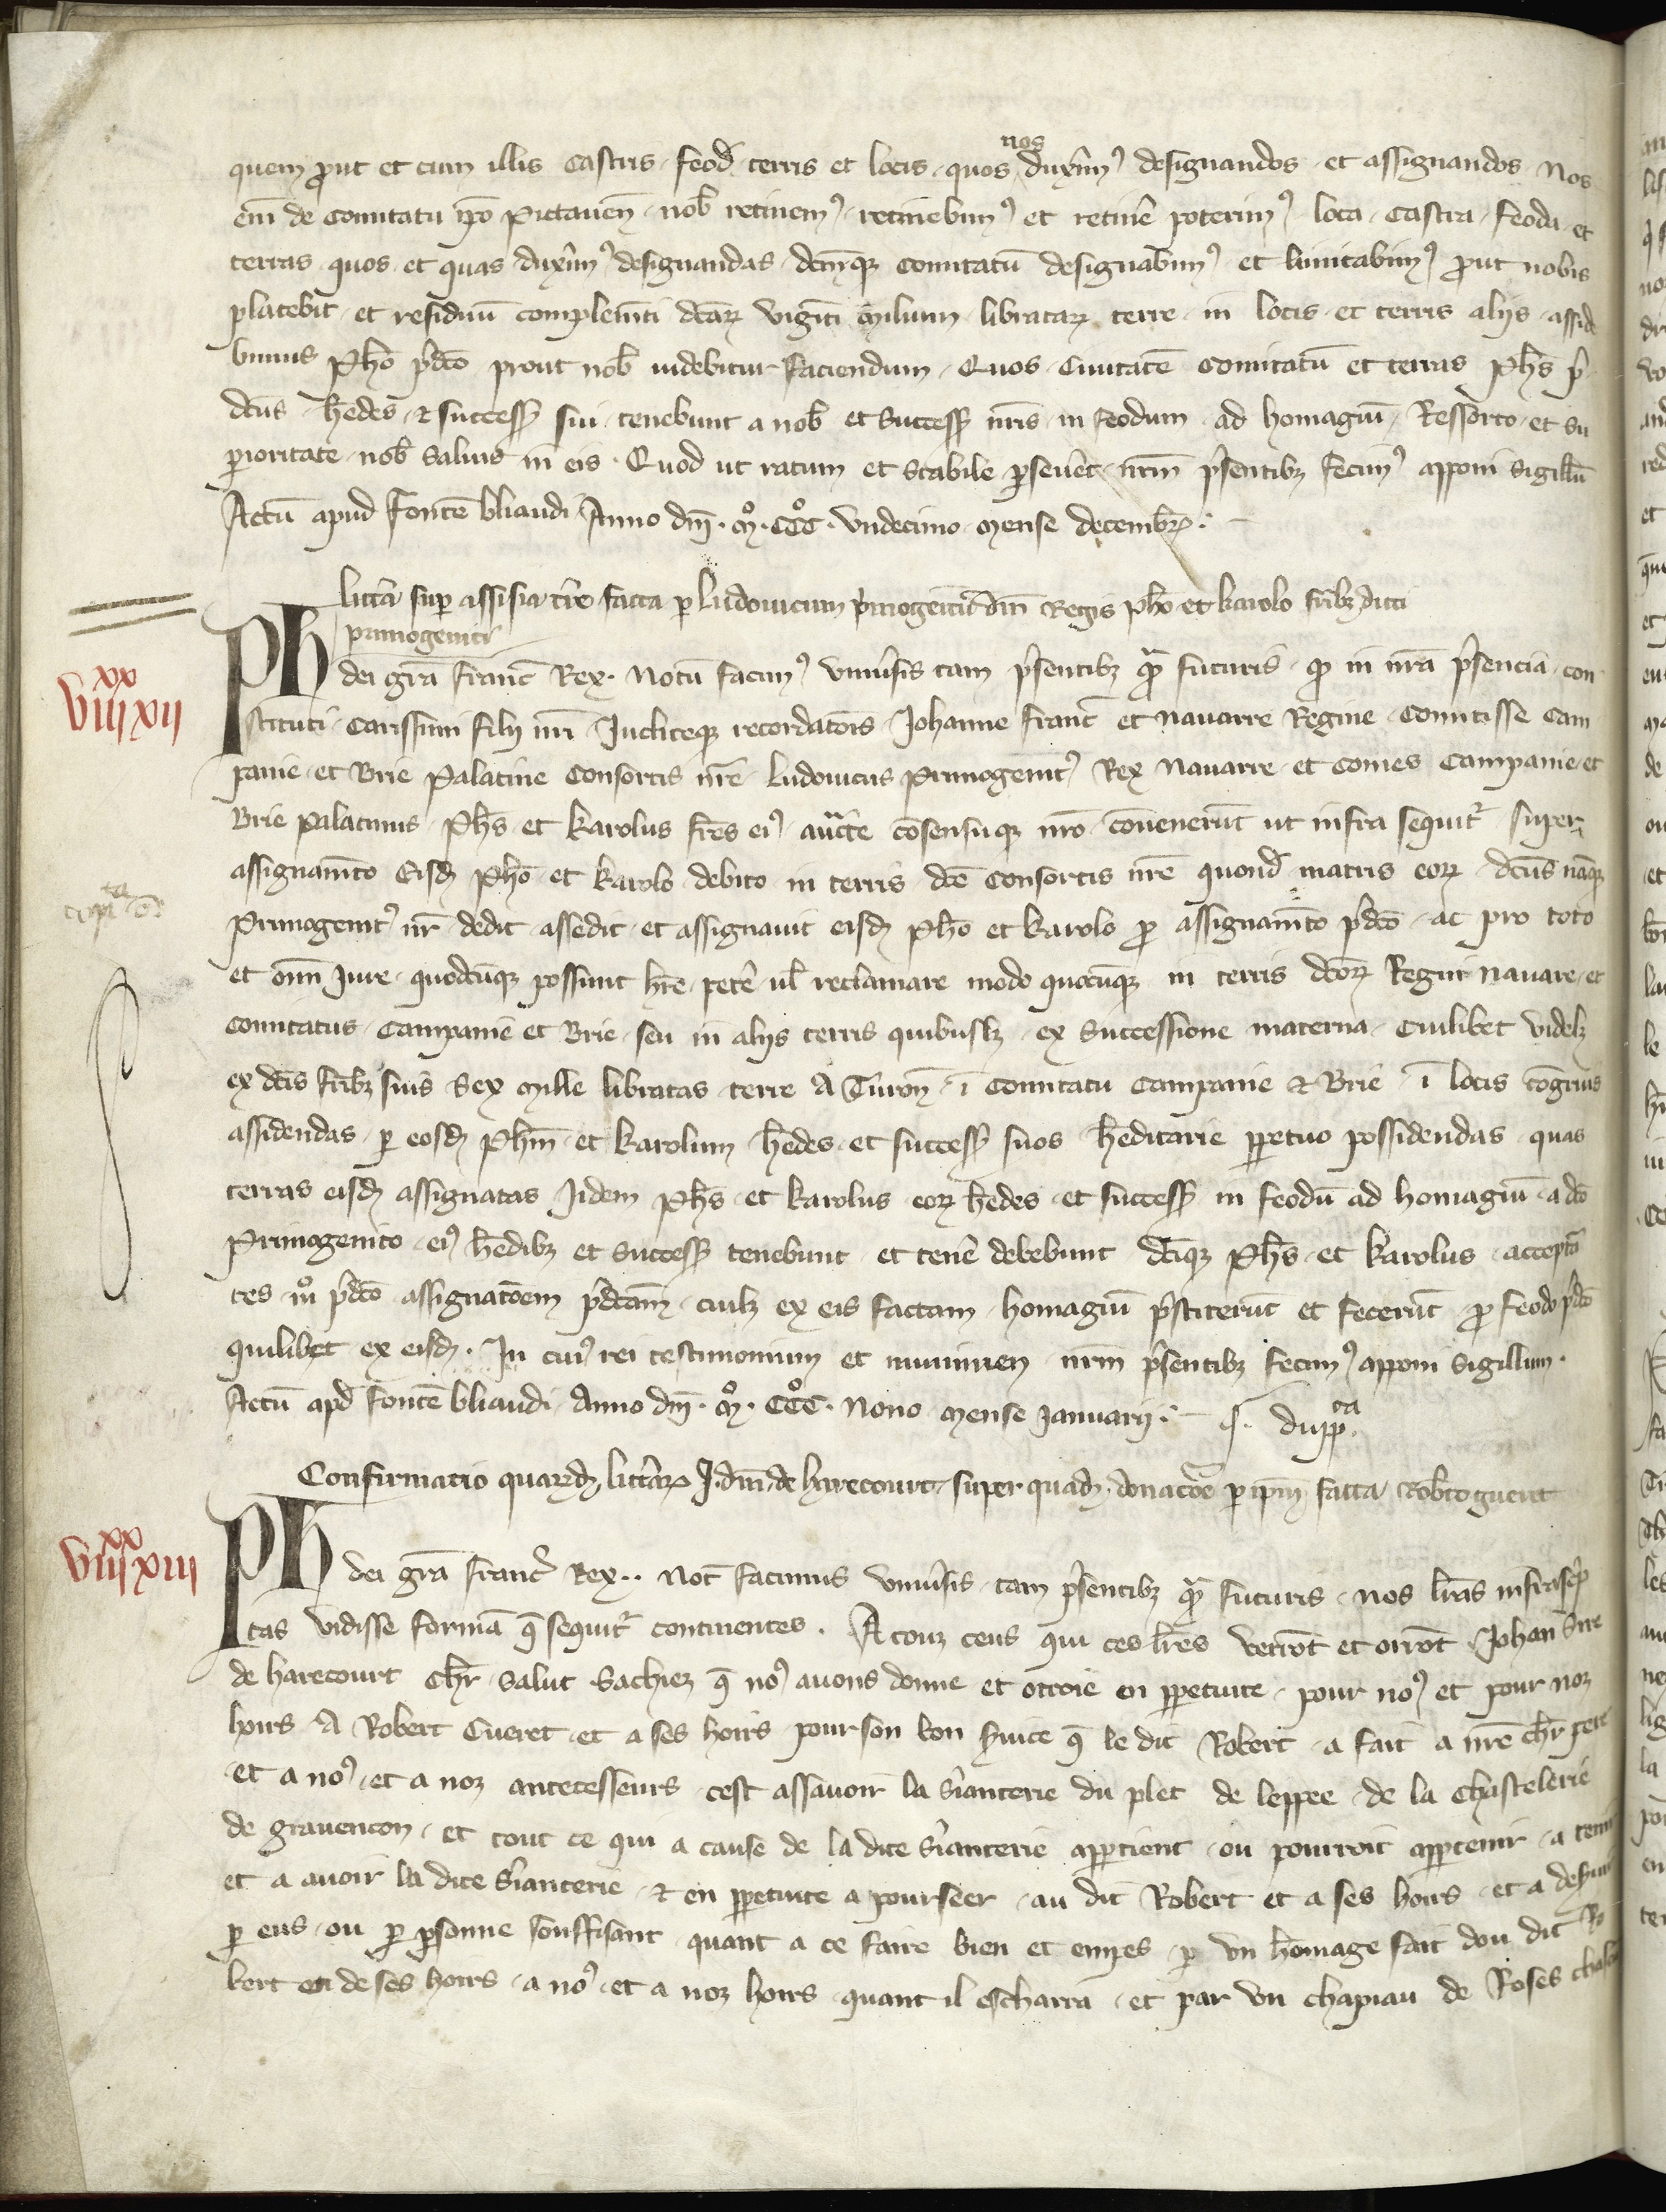 quem prout et cum illis castris feod terris et locis quos nos duxim9 designandos et assignandos Nos
eni de comitatu ipo Pictaven nob retinem9 retinebim9 et retine poterim9 loca castra feoda et
terras quos et quas duxim9 designandas dcmqz comitatu designabim9 et limitabim9 prout nobis
placebit et residuu complemti dcarz viginti milium libratarz terre in locis et terris aliis assid
bimus Pho pdco prout nob videbitur faciendum Quos civitate comitatu et terras Phs p
dcus hedes et success sui tenebunt a nob et success nris in feodum ad homagiu Ressorto et su
perioritate nob salvis in eis Quod ut ratum et stabile persevet nrm psentibz fecim9 apponi sigillu
Actu apud Fonte bliaudi Anno dni Mº CCCº undecimo mense decembr
littera super assisia tre facta per Ludovicum primogenitu dni Regis Pho et Karolo fribz dicti
primogeniti
VIIIxx XII
Ph dei gra Franc Rex Notu facim9 univsis tam psentibz qm futuris qd in nra psencia con
stituti carissimi filii nri Incliteqz recordatois Johanne Franc et Navarre Regine Comitisse Cam
panie et Brie Palatine consortis nre Ludovicus primogenit9 Rex Navarre et comes Campanie et
Brie palatinus Phs et Karolus fres ei9 auctte consensuqz nro convenerut ut infra sequit super
assignamto eisd Pho et Karolo debito in terris dce consortis nre quond matris eorz dcus naqz
primogenit9 nr dedit assedit et assignavit eisd Pho et Karolo pro assignamto pdco ac pro toto
et omi Jure quodcuqz possunt hre pete vl reclamare modo quocuqz in terris dcorz Regni Navare et
comitatus Campanie et Brie seu in aliis terris quibuslz ex successione materna cuilibet videlz
ex dcis fribz suis sex mille libratas terre a Turon i comitatu Campanie et Brie i locis cogruis
assidendas per eosd Phm et Karolum hedes et success suos heditarie perpetuo possidendas quas
terras eisd assignatas Iidem Phs et Karolus eorz hedes et success in feodu ad homagiu a dco
primogenito ei9 hedibz et success tenebunt et tene debebunt dciqz Phs et Karolus acceptan
tes mo pdco assignatoem pdcam cuilz ex eis factam homagiu pstiterut et fecerut pro feodo pdco
quilibet ex eisd In cui9 rei testimonium et munimen nrm psentibz fecim9 apponi sigillum
Actu apd Fonte bliaudi Anno dni Mº CCCº Nono mense Januarii duppta
Confirmatio quarumd litterarz J dni de Harecourt super quad donatoe per ipm facta Robto Gueret
VIIIxx XIII
Ph dei gra Franc Rex Not facimus univsis tam psentibz qm futuris nos lras infrascp
tas vidisse forma q sequit continentes A touz ceus qui ces lres verront et orront Johan sire
de Harecourt chr salut Sachiez q no9 avons donne et otroie en perpetuite pour no9 et pour noz
hoirs A Robert Cueret et a ses hoirs pour son bon svice q le dit Robert a fait a nre chr pere
et a no9 et a noz antecesseurs cest assavoir la sjanterie du plet de leppee de la chastelerie
de gravencon et tout ce qui a cause de la dite sjanterie appartient ou pourroit appartenir a tenir
et a avoir la dite sjanterie et en perpetuite a pourseer au dit Robert et a ses hoirs et a desvir
par eus ou par personne souffisant quant a ce faire bien et empes par un homage fait dou dit Ro
bert ou de ses hoirs a no9 et a noz hoirs quant il escharra et par un chapiau de Roses